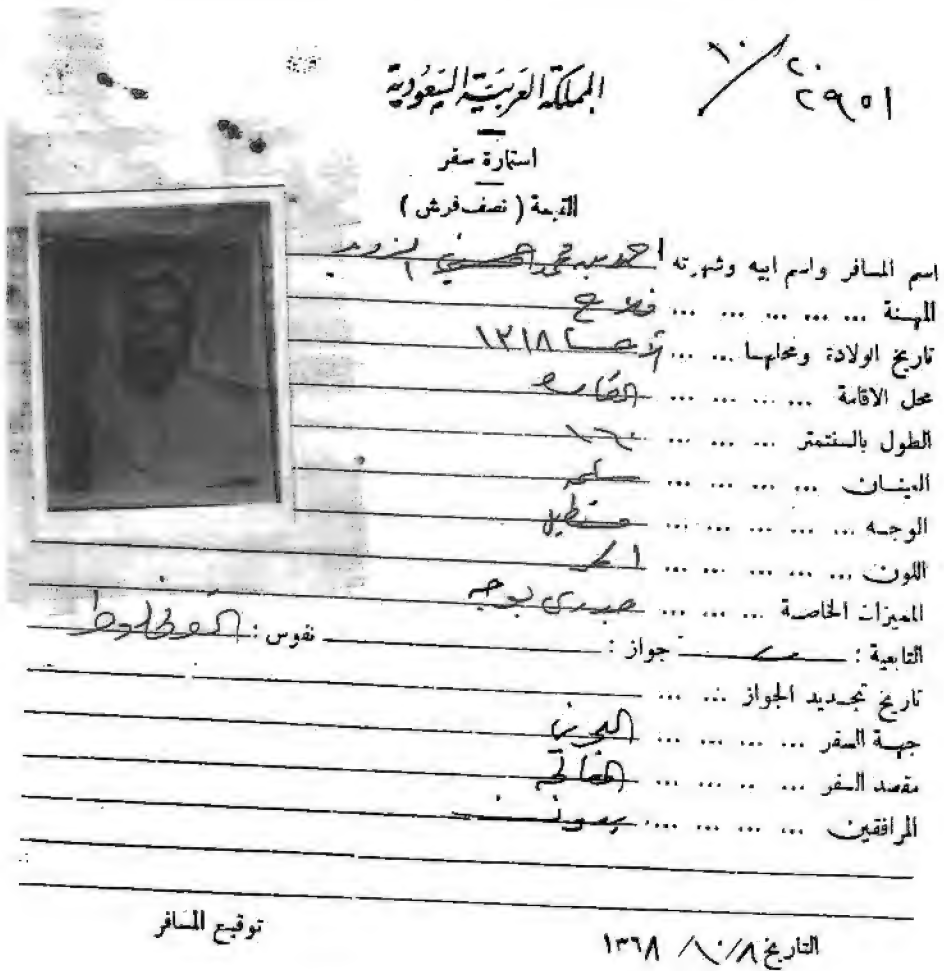 ١٠/٢٠
٢٩٥١
المملكة العربية السعودية
استمارة سفر
القيمة (نصف قرش)
اسم المسافر واسم ابيه وشهرته احمد بن محمد
المهنة ... ... ... ... فلاح
تاريخ الولادة ومحلها ... ... الاحسا ١٣١٨
محل الاقامة ... ... ... ...
الطول بالسنتمتر ... ... ... ١٦٠
العينان ... ... ... ...
الوجه ... ... ... ... ... مستطيل
اللون ... ... ... ... ... اسمر
المميزات الخاصة ... ... ... جدري بوجهه
التابعية : جواز : نفوس :
تاريخ تجديد الجواز ... ...
جهة السفر ... ... ... ... البحرين
مقصد السفر ... ... ... ...
المرافقين ... ... ... ... بدون
التاريخ ٨/١٠/١٣٦٨
توقيع المسافر